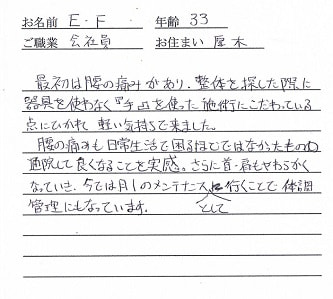 お名前 E・F 年齢 33
ご職業 会社員 お住まい 厚木
最初は腰の痛みがあり、整体を探した際に
器具を使わなく『手』を使った施術にこだわっている
点にひかれ軽い気持ちで来ました。
腰の痛みも日常生活で困るほどではなかったものの
通院して良くなることを実感。さらに首・肩もやわらかく
なっていき、今では月1のメンテナンスとして行くことで体調
管理にもなっています。